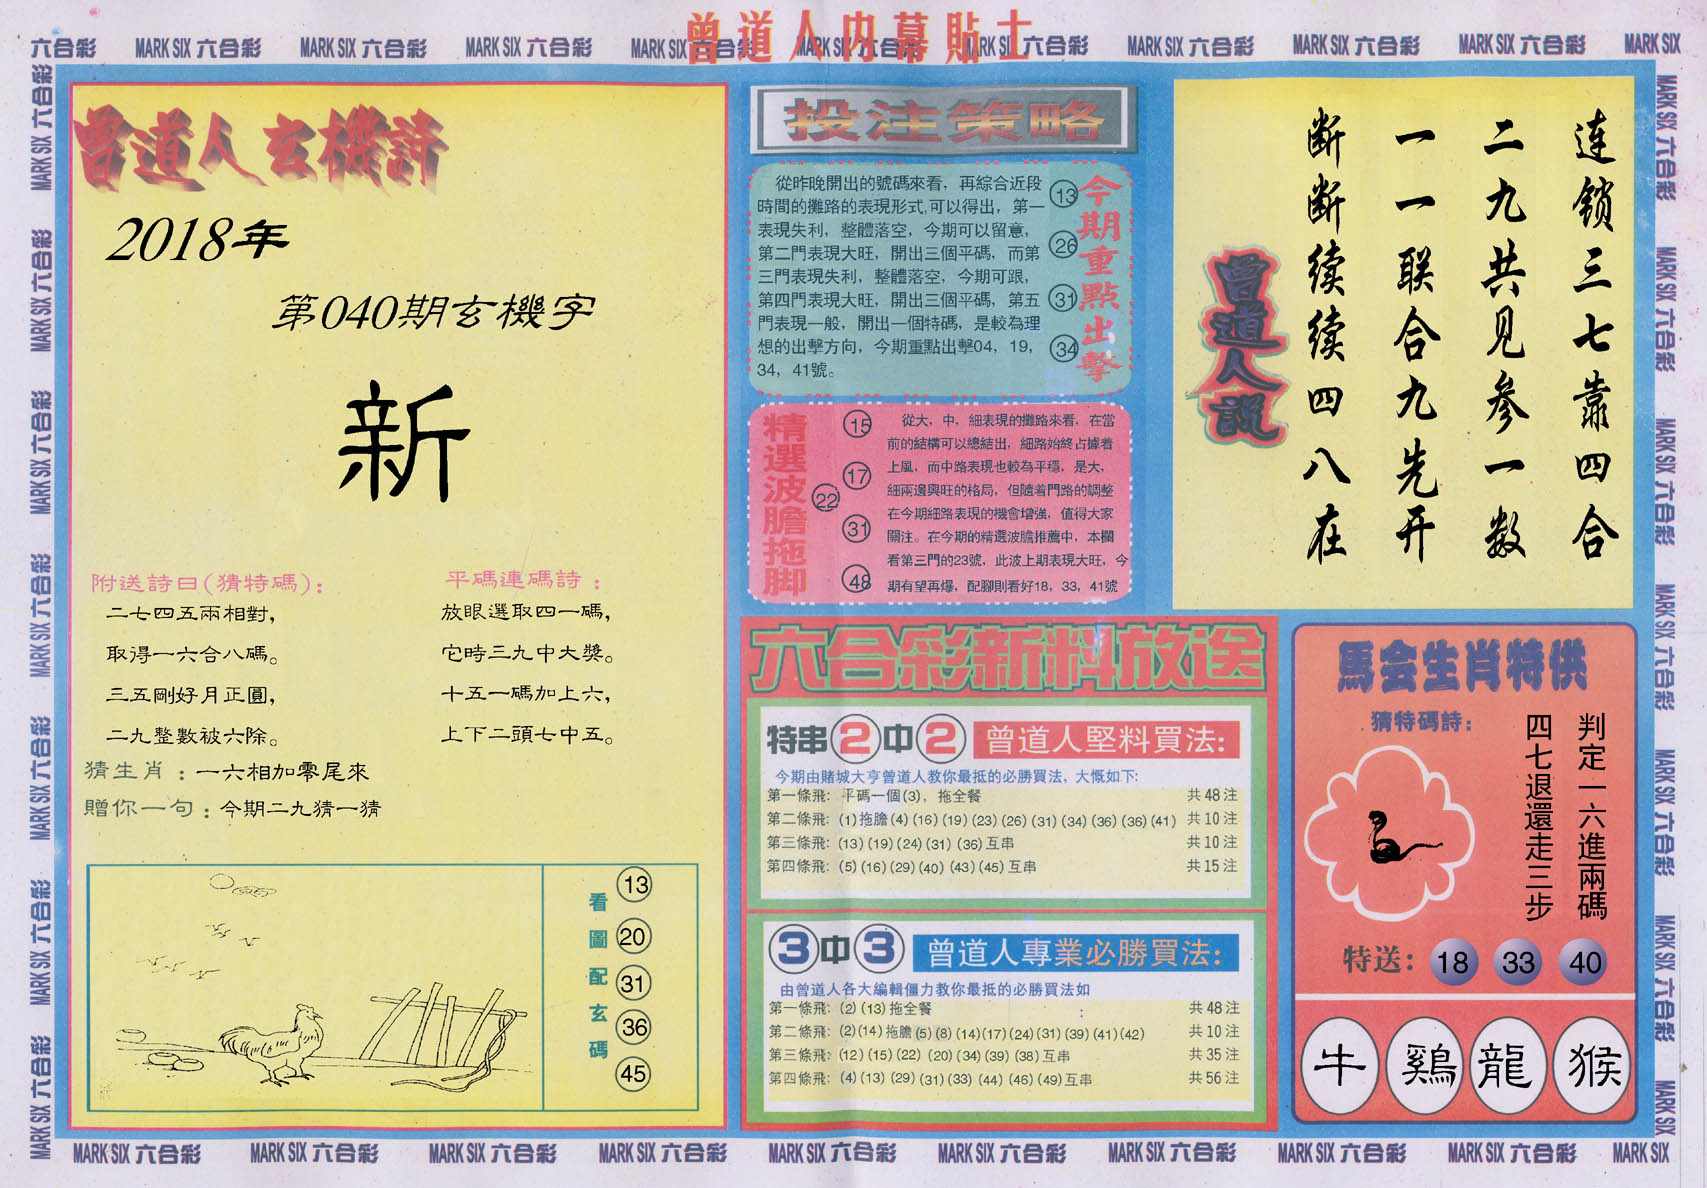 曾道人内幕貼士
六合彩 MARK SIX 六合彩 MARK SIX 六合彩 MARK SIX 六合彩 MARK SIX 六合彩 MARK SIX 六合彩 MARK SIX 六合彩 MARK SIX 六合彩 MARK SIX 六合彩 MARK SIX 六合彩 MARK SIX
曾道人玄機詩
2018年
第040期玄機字
新
附送詩曰(猜特碼):
二七四五兩相對,
取得一六合八碼。
三五剛好月正圓,
二九整數被六除。
平碼連碼詩:
放眼選取四一碼,
它時三九中大獎。
十五一碼加上六,
上下二頭七中五。
猜生肖:一六相加零尾來
贈你一句:今期二九猜一猜
看圖配玄碼
13
20
31
36
45
投注策略
從昨晚開出的號碼來看，再綜合近段
時間的攤路的表現形式,可以得出，第一
表現失利，整體落空，今期可以留意，
第二門表現大旺，開出三個平碼，而第
三門表現失利，整體落空，今期可跟，
第四門表現大旺，開出三個平碼，第五
門表現一般，開出一個特碼，是較為理
想的出擊方向，今期重點出擊04，19，
34，41號。
13
26
31
34
今期重點出擊
精選波膽拖脚
15
17
22
31
48
從大，中，細表現的攤路來看，在當
前的結構可以總結出，細路始終占據着
上風，而中路表現也較為平穩，是大，
細兩邊興旺的格局，但隨着門路的調整
在今期細路表現的機會增強，值得大家
關注。在今期的精選波膽推薦中，本欄
看第三門的23號，此波上期表現大旺，今
期有望再爆，配腳則看好18，33，41號
连锁三七靠四合
二九共见参一数
一一联合九先开
断断续续四八在
曾道人説
六合彩新料放送
特串2中2 曾道人堅料買法:
今期由賭城大亨曾道人教你最抵的必勝買法，大慨如下:
第一條飛: 平碼一個(3)，拖全餐 共48注
第二條飛: (1)拖膽(4)(16)(19)(23)(26)(31)(34)(36)(36)(41) 共10注
第三條飛: (13)(19)(24)(31)(36)互串 共10注
第四條飛: (5)(16)(29)(40)(43)(45)互串 共15注
3中3 曾道人專業必勝買法:
由曾道人各大編輯僵力教你最抵的必勝買法如
第一條飛: (2)(13)拖全餐 共48注
第二條飛: (2)(14)拖膽(5)(8)(14)(17)(24)(31)(39)(41)(42) 共10注
第三條飛: (12)(15)(22)(20)(34)(39)(38)互串 共35注
第四條飛: (4)(13)(29)(31)(33)(44)(46)(49)互串 共56注
馬会生肖特供
猜特碼詩:
判定一六進兩碼
四七退還走三步
特送: 18 33 40
牛 鷄 龍 猴
MARK SIX 六合彩 MARK SIX 六合彩 MARK SIX 六合彩 MARK SIX 六合彩 MARK SIX 六合彩 MARK SIX 六合彩 MARK SIX 六合彩 MARK SIX 六合彩 MARK SIX 六合彩 MARK SIX